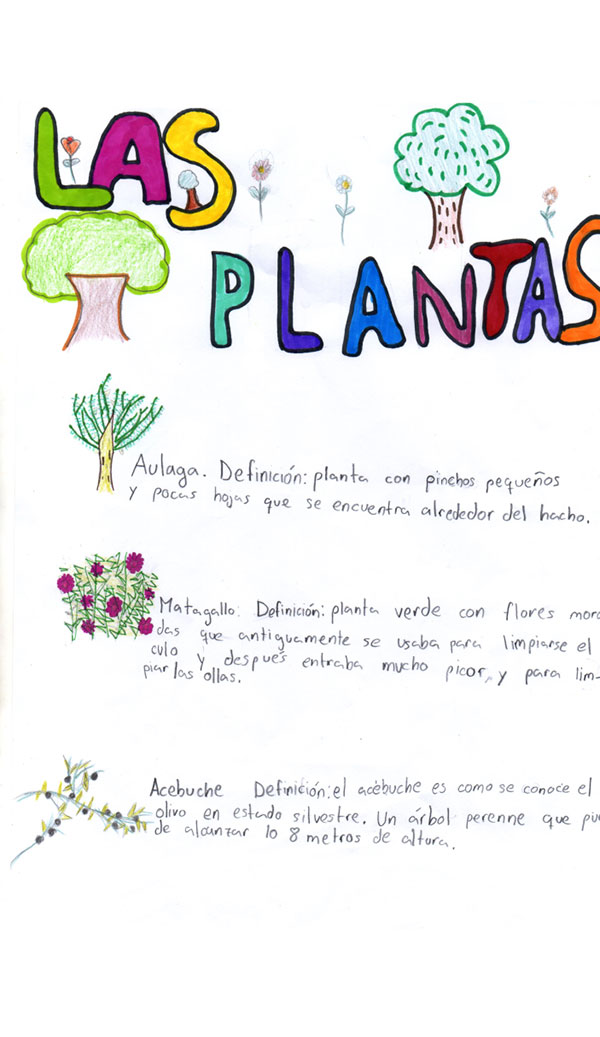 LAS
PLANTAS
Aulaga. Definición: planta con pinchos pequeños
y pocas hojas que se encuentra alrededor del hacho.
Matagallo: Definición: planta verde con flores mora
das que antiguamente se usaba para limpiarse el
culo y después entraba mucho picor, y para lim-
piar las ollas.
Acebuche Definición: el acebuche es como se conoce el
olivo en estado silvestre. Un árbol perenne que pue
de alcanzar lo 8 metros de altura.